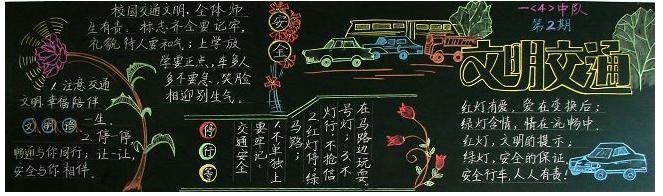 校园交通文明,全体师
生有责:标志齐全要记牢,
礼貌待人要和气;上学放
学要正点,车多人
多不要急,笑脸
相迎别生气。
安全
一<4>中队
第2期
文明交通
1.注意交通
文明,幸福陪伴
文明语
一生。
2.停一停,
畅通与你同行;让一让,
安全与你相伴。
停行等
在马路边玩耍。
号灯;3.不
灯行,不抢信
2.红灯停,绿
马路;
1.不单独上
要牢记:
交通安全
红灯有爱,爱在变换后;
绿灯含情,情在流畅中。
红灯,文明的提示;
绿灯,安全的保证。
安全行车,人人有责!